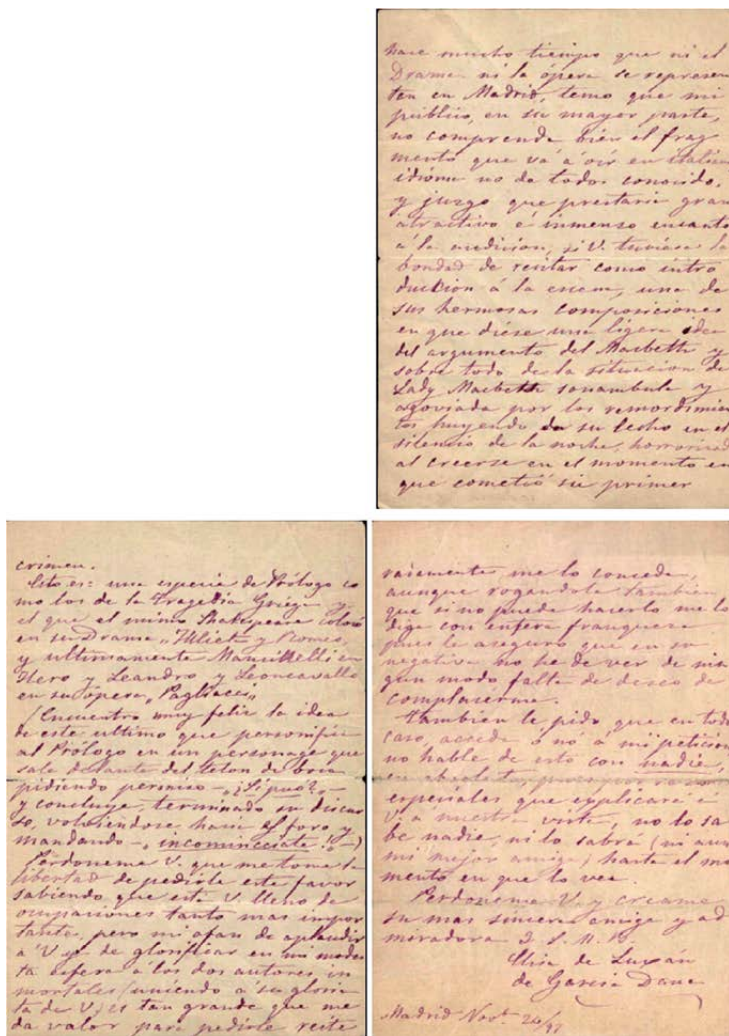 hace mucho tiempo que ni el
Drama ni la ópera se represen
ten en Madrid, temo que mi
público, en su mayor parte,
no comprenda bien el frag
mento que vá á oir en italiano
idioma no de todos conocido,
y juzgo que prestaria gran
atractivo é inmenso encanto
á la audicion, si V. tuviese la
bondad de recitar como intro
duccion á la escena, una de
sus hermosas composiciones
en que diése una ligera idea
del argumento del Macbeth y
sobre todo de la situacion de
Lady Macbeth sonambula y
agoviada por los remordimien
tos huyendo de su lecho en el
silencio de la noche, horrorizada
al creerse en el momento en
que cometió su primer
crimen.
Esto es: una especie de Prólogo co
mo los de la Tragedia Griega y
el que el mismo Shakespeare colocó
en su Drama "Julieta y Romeo"
y ultimamente Mancinelli en
Hero y Leandro y Leoncavallo
en su ópera "Pagliacci"
(Encuentro muy feliz la idea
de este ultimo que personifica
al Prólogo en un personage que
sale delante del telon de boca
pidiendo permiso - "Si puo?" -
y concluye, terminado su discur
so, volviendose hacia el foro y
mandando - incominciate! -)
Perdoneme V. que me tome la
libertad de pedirle este favor
sabiendo que está V. lleno de
ocupaciones tanto mas impor
tante, pero mi afan de aplaudir
á V. y de glorificar en mi modes
ta esfera á los dos autores in
mortales (uniendo á su gloria
la de V.) es tan grande que me
da valor para pedirle
me lo conceda,
aunque rogandole tambien
que si no puede hacerlo me lo
diga con entera franqueza
pues le aseguro que en su
negativa no he de ver de nin
gun modo falta de deseo de
complacerme.
Tambien le pido que en todo
caso, acceda ó nó á mi peticion
no hable de esto con nadie,
en absoluto, pues por razones
especiales que esplicaré á
V. á nuestra vista, no lo sa
be nadie, ni lo sabrá (ni aun
mi mejor amiga) hasta el mo
mento en que lo vea.
Perdoneme V. y creame
su mas sincera amiga y ad
miradora Q. S. M. B.
Elisa de Luxán
de García Dana
Madrid Novb.